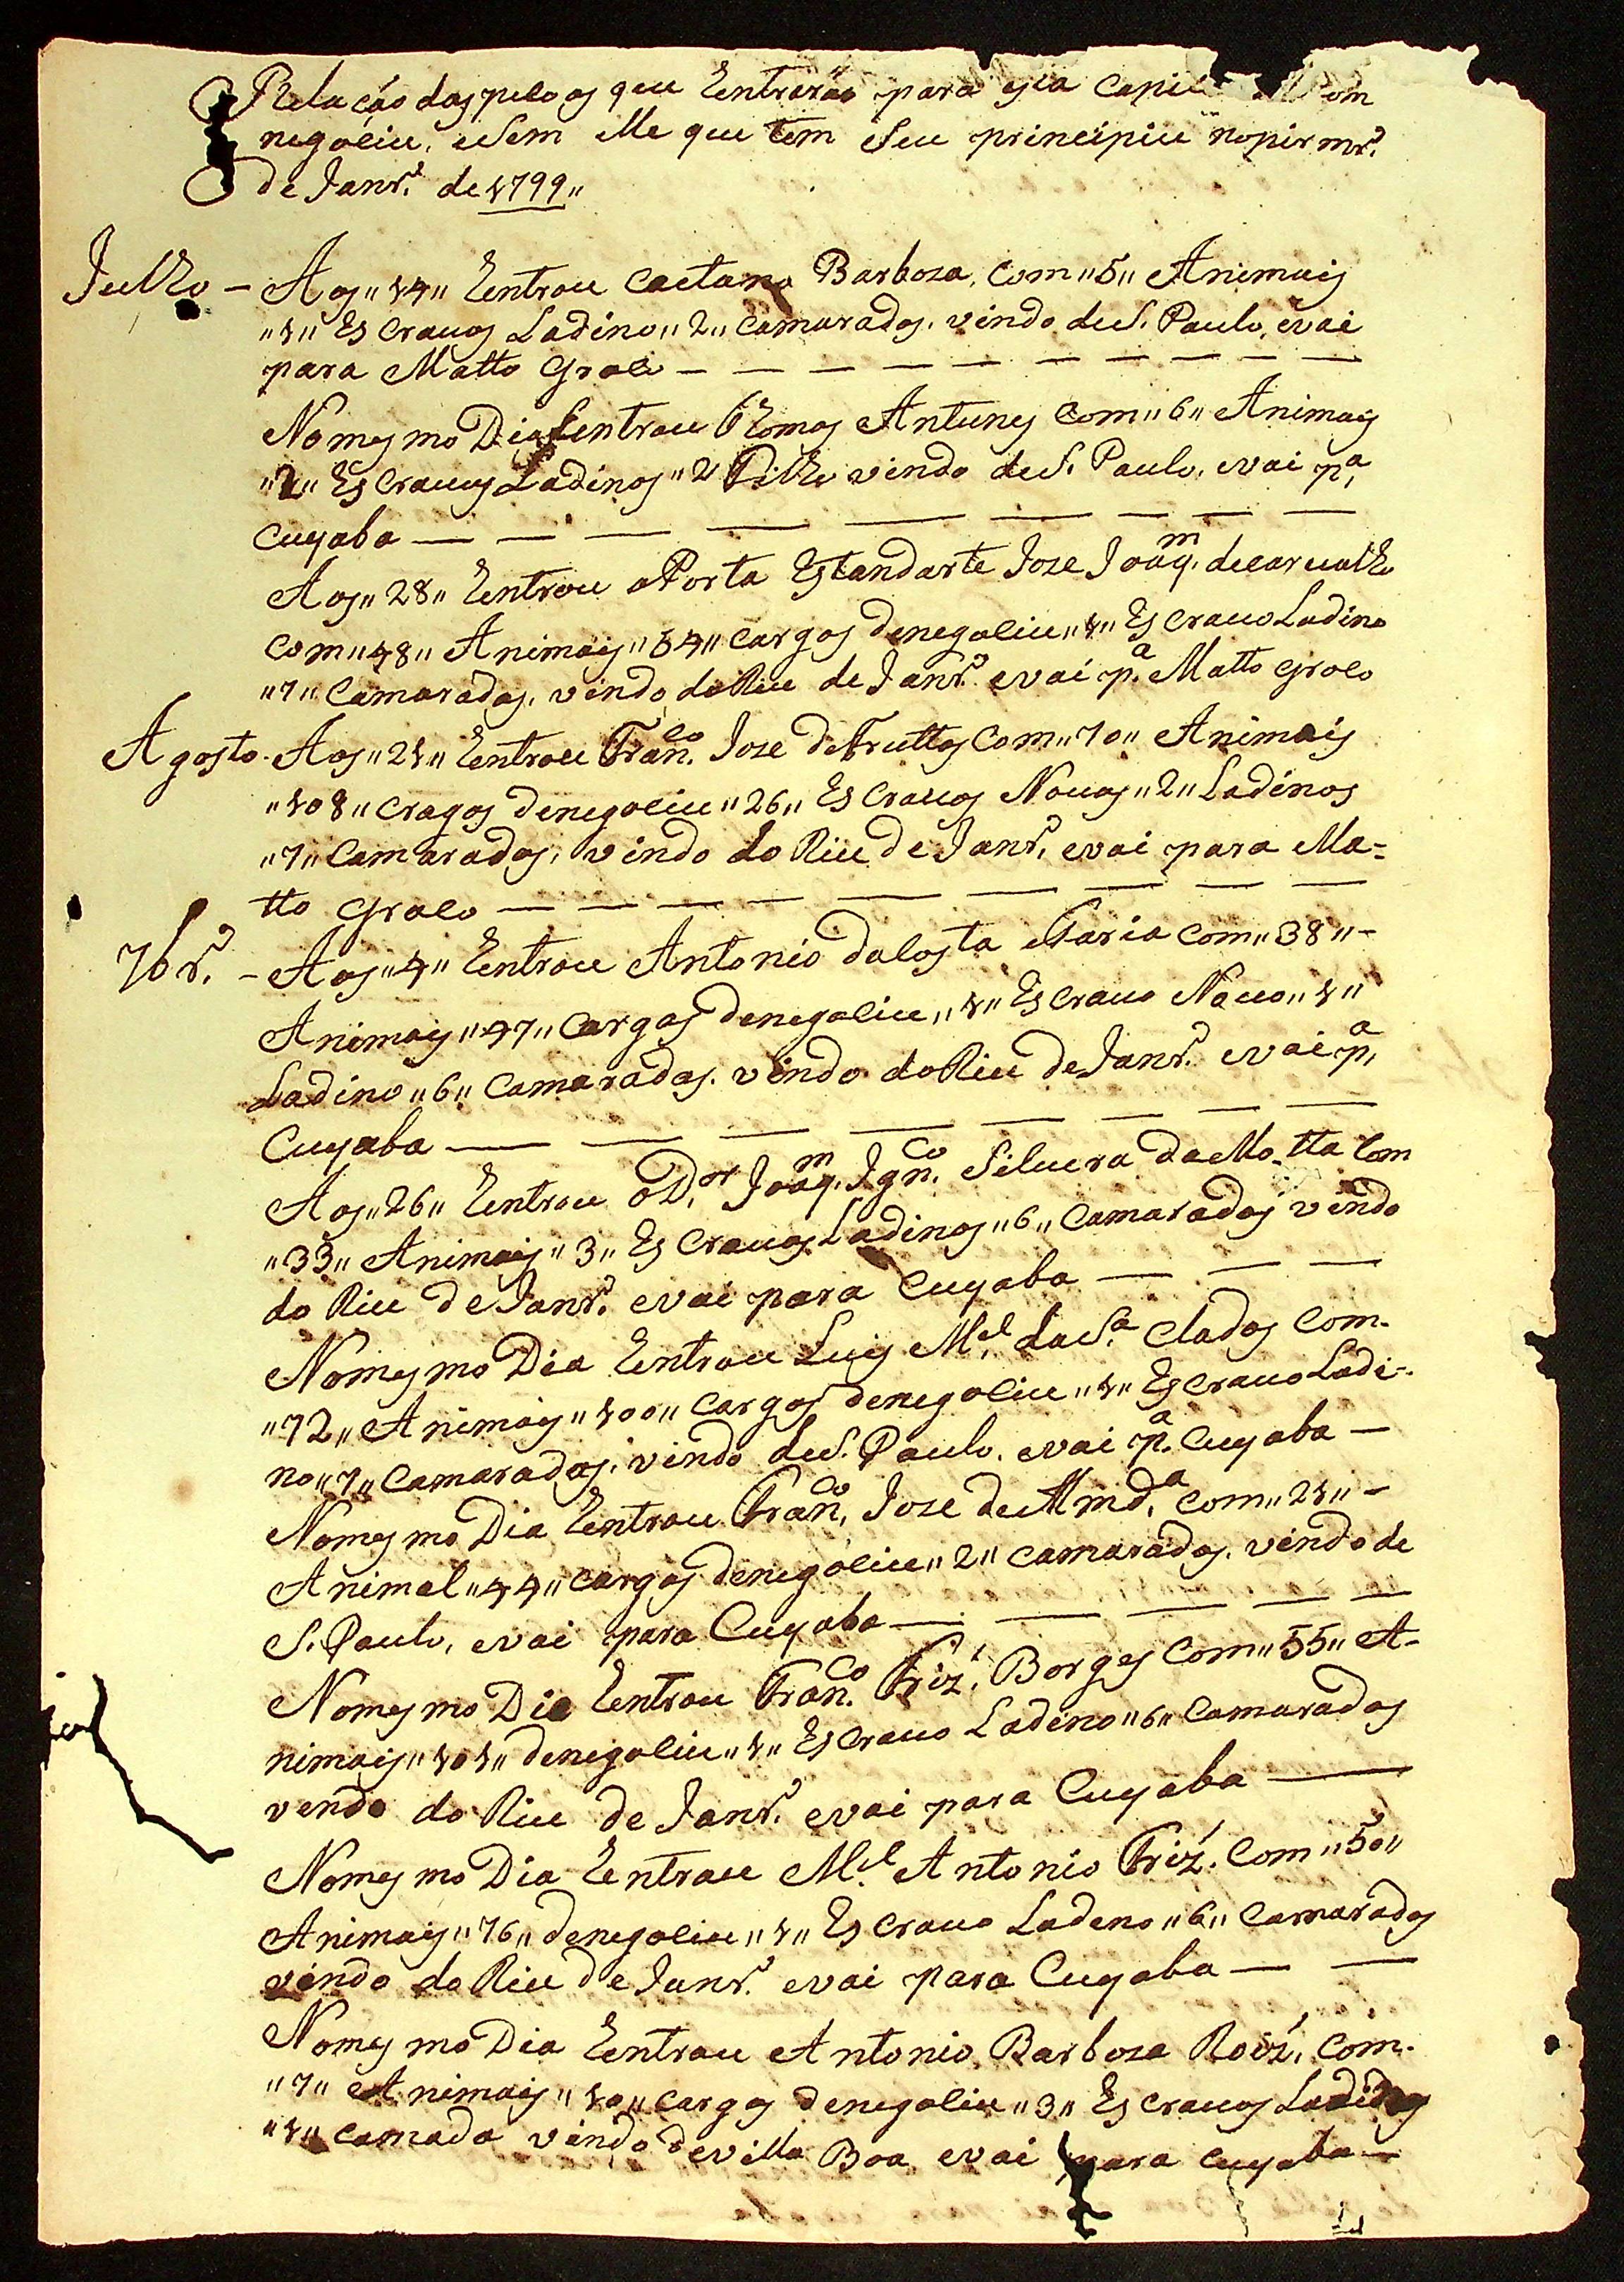 Relacáo das peloas que Entraráo para esta Capi
negoliu, eSem elle que tem Seu principiu nopirmr.º
de Janr.º de 1799„
Julho – Aos„14„ Entrou Caetano Barboza, Com„5„ Animais
„1„ EsCrauos Ladino„2„ Camarados. vindo deS. Paulo, evai
para Matto Grolo — — — — — — — — —
Nomesmo Dia Entrou Thomas Antunes Com„6„ Animais
„2„ EsCrauos Ladinos „2„ Filho vindo deS. Paulo, evai p.ª
Cuyaba — — — — — — — —
Aos„28„ Entrou oPorta Estandarte Joze Joaq.m deCarualho
Com„48„ Animais„54„ Cargas denegoliu„1„ EsCrauo Ladino
„7„ Camarados, vindo doRiu de Janr.º evai p.ª Matto Grolo
Agosto. Aos„21„ Entrou Fran.co Joze deFruttas Com„70„ Animais
„108„ Cragos denegoliu„26„ EsCrauos Nouos„2„ Ladinos
„7„ Camarados, vindo do Riu de Janr.º, evai para Ma=
tto Grolo — — — — — — — — —
7br.º – Aos„4„ Entrou Antonio daCosta Faria Com„38„–
Animais„47„ Cargas denegoliu„1„ EsCrauo Nouo„1„
Ladino„6„ Camarados. vindo doRiu deJanr.º evai p.ª
Cuyaba — — — — — — —
Aos„26„ Entrou oD.or Joaq.m Ign.co Siluera daMotta Com
„33„ Animais„3„ EsCrauos Ladinos„6„ Camarados vindo
do Riu deJanr.º evai para Cuyaba — — —
Nomesmo Dia Entrou Luis M.el daS.ª Com.
„72„ Animais„100„ Cargos denegoliu„1„ EsCrauo Ladi=
no„7„ Camarados, vindo deS. Paulo, evai p.ª Cuyaba —
Nomesmo Dia Entrou Fran.co Joze deAlmd.ª Com„21„–
Animal„44„ Cargas denegoliu„2„ Camarados. vindo de
S. Paulo, evai para Cuyaba — — — — —
Nomesmo Dia Entrou Fran.co Friz' Borges Com„55„ A-
nimais„101„ denegoliu„1„ EsCrauo Ladino„6„ Camarados
vendo do Riu de Janr.º evai para Cuyaba —
Nomesmo Dia Entrou M.el Antonio Friz'. Com„50„
Animais„76„ denegoliu„1„ EsCrauo Ladeno„6„ Camarados
vindo do Riu deJanr.º evai para Cuyaba — —
Nomesmo Dia Entrou Antonio Barboza Roiz', Com.
„7„ Animais„10„ Cargos denegoliu„3„ EsCrauos Ladidos
„1„ Camada vindo deVilla Boa evai para Cuyaba —